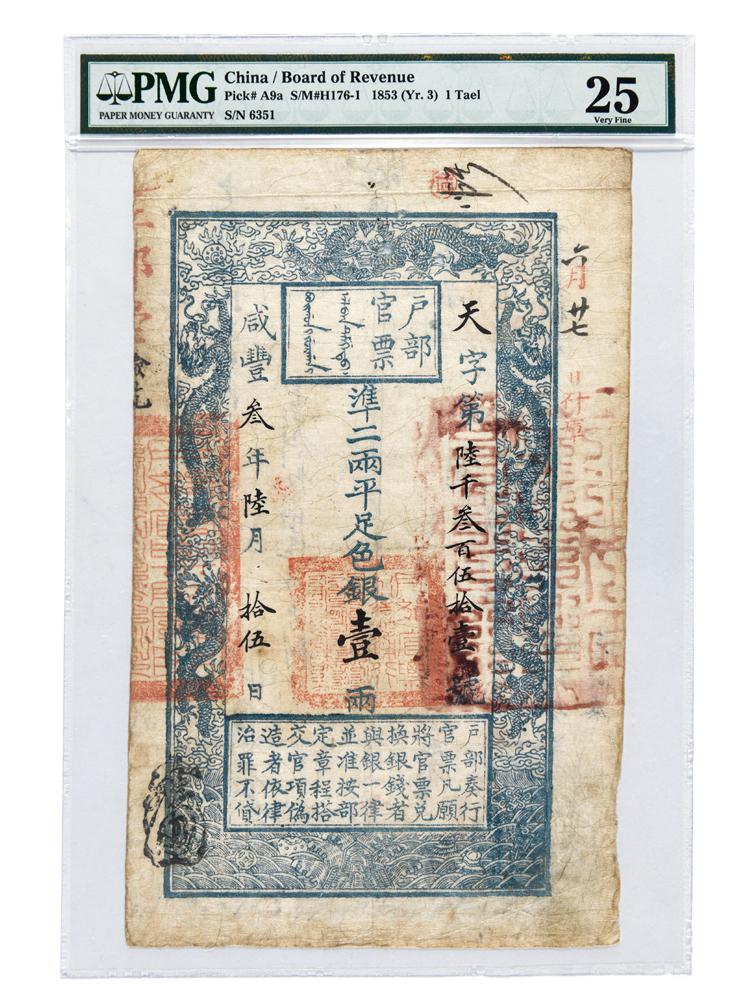 PMG
PAPER MONEY GUARANTY
China / Board of Revenue
Pick# A9a S/M#H176-1 1853 (Yr. 3) 1 Tael
S/N 6351
25
Very Fine
六月廿七
日
天字第陸千叁百伍拾壹號
戶部
官票
準二兩平足色銀壹兩
咸豐叁年陸月拾伍日
戶部奏行
官票凡願
將官票兌
換銀錢者
與銀一律
並准按部
定章程搭
交官項偽
造者依律
治罪不貸